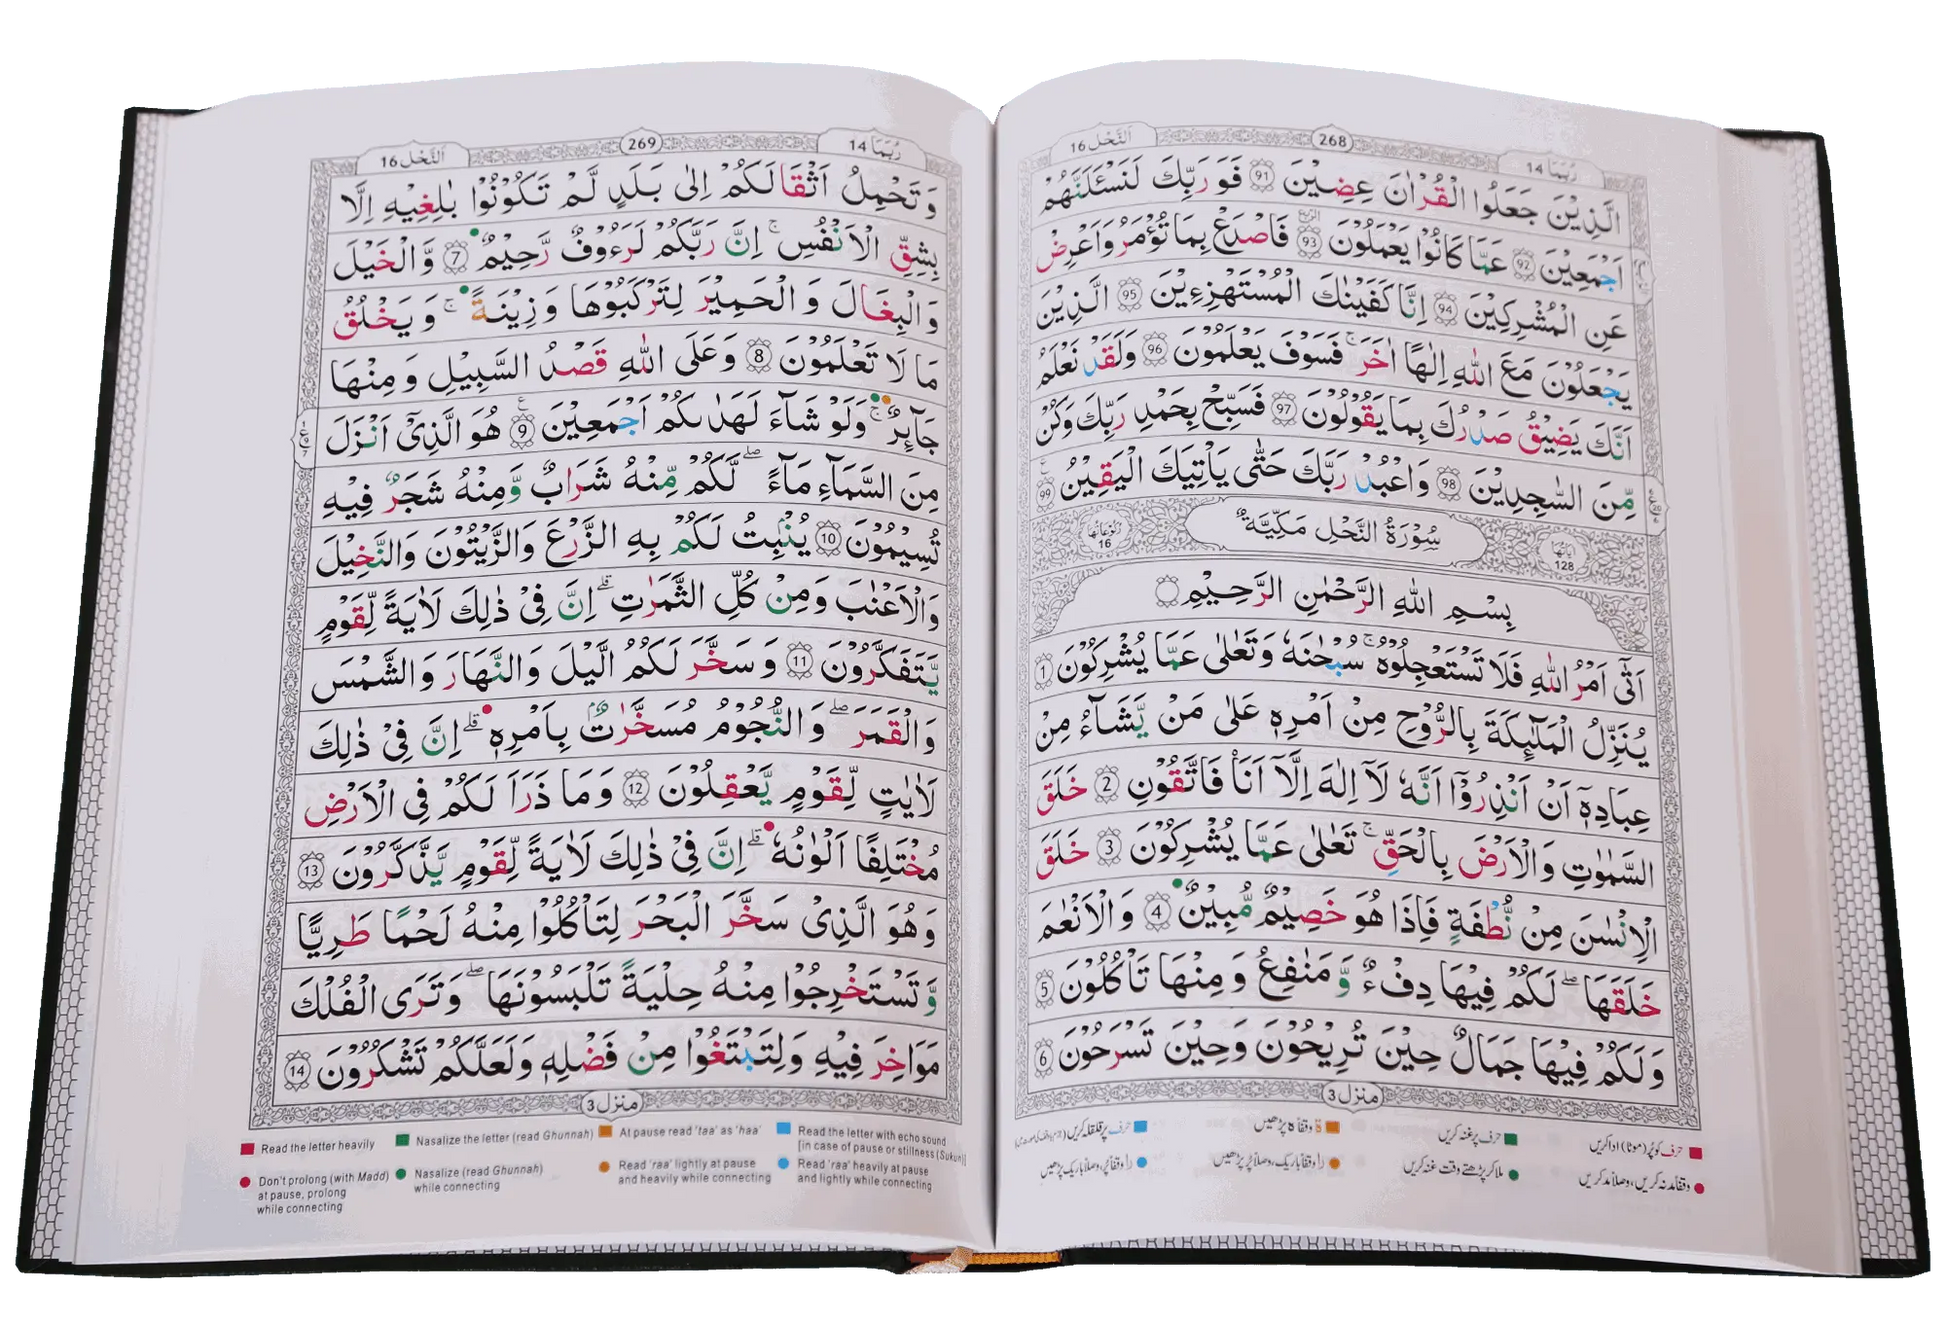 النّحل 16
268
ربما 14
الَّذِيْنَ جَعَلُوا الْقُرْاٰنَ عِضِيْنَ 91 فَوَرَبِّكَ لَنَسْـَٔلَنَّهُمْ
اَجْمَعِيْنَ 92 عَمَّا كَانُوْا يَعْمَلُوْنَ 93 فَاصْدَعْ بِمَا تُؤْمَرُ وَاَعْرِضْ
عَنِ الْمُشْرِكِيْنَ 94 اِنَّا كَفَيْنٰكَ الْمُسْتَهْزِءِيْنَ 95 الَّذِيْنَ
يَجْعَلُوْنَ مَعَ اللّٰهِ اِلٰهًا اٰخَرَ ۚ فَسَوْفَ يَعْلَمُوْنَ 96 وَلَقَدْ نَعْلَمُ
اَنَّكَ يَضِيْقُ صَدْرُكَ بِمَا يَقُوْلُوْنَ 97 فَسَبِّحْ بِحَمْدِ رَبِّكَ وَكُنْ
مِّنَ السّٰجِدِيْنَ 98 وَاعْبُدْ رَبَّكَ حَتّٰى يَاْتِيَكَ الْيَقِيْنُ 99
اٰيَاتُهَا 128 سُوْرَةُ النَّحْلِ مَكِّيَّةٌ رُكُوْعَاتُهَا 16
بِسْمِ اللّٰهِ الرَّحْمٰنِ الرَّحِيْمِ
اَتٰٓى اَمْرُ اللّٰهِ فَلَا تَسْتَعْجِلُوْهُ ۚ سُبْحٰنَهٗ وَتَعٰلٰى عَمَّا يُشْرِكُوْنَ 1
يُنَزِّلُ الْمَلٰٓئِكَةَ بِالرُّوْحِ مِنْ اَمْرِهٖ عَلٰى مَنْ يَّشَآءُ مِنْ
عِبَادِهٖٓ اَنْ اَنْذِرُوْٓا اَنَّهٗ لَآ اِلٰهَ اِلَّآ اَنَا فَاتَّقُوْنِ 2 خَلَقَ
السَّمٰوٰتِ وَالْاَرْضَ بِالْحَقِّ ۚ تَعٰلٰى عَمَّا يُشْرِكُوْنَ 3 خَلَقَ
الْاِنْسٰنَ مِنْ نُّطْفَةٍ فَاِذَا هُوَ خَصِيْمٌ مُّبِيْنٌ 4 وَالْاَنْعٰمَ
خَلَقَهَا ۖ لَكُمْ فِيْهَا دِفْءٌ وَّمَنٰفِعُ وَمِنْهَا تَاْكُلُوْنَ 5
وَلَكُمْ فِيْهَا جَمَالٌ حِيْنَ تُرِيْحُوْنَ وَحِيْنَ تَسْرَحُوْنَ 6
منزل 3
حرف کو پُر (موٹا) ادا کریں
حرف پر غنہ کریں
ۃ وقفاً ہ پڑھیں
وقفاً مد نہ کریں، وصلاً مد کریں
ملا کر پڑھتے وقت غنہ کریں
را وقفاً باریک، وصلاً پُر پڑھیں
را وقفاً پُر، وصلاً باریک پڑھیں
النّحل 16
269
ربما 14
وَتَحْمِلُ اَثْقَالَكُمْ اِلٰى بَلَدٍ لَّمْ تَكُوْنُوْا بٰلِغِيْهِ اِلَّا
بِشِقِّ الْاَنْفُسِ ۚ اِنَّ رَبَّكُمْ لَرَءُوْفٌ رَّحِيْمٌ 7 وَّالْخَيْلَ
وَالْبِغَالَ وَالْحَمِيْرَ لِتَرْكَبُوْهَا وَزِيْنَةً ۚ وَيَخْلُقُ
مَا لَا تَعْلَمُوْنَ 8 وَعَلَى اللّٰهِ قَصْدُ السَّبِيْلِ وَمِنْهَا
جَآئِرٌ ۚ وَلَوْ شَآءَ لَهَدٰىكُمْ اَجْمَعِيْنَ 9 هُوَ الَّذِيْٓ اَنْزَلَ
مِنَ السَّمَآءِ مَآءً ۖ لَّكُمْ مِّنْهُ شَرَابٌ وَّمِنْهُ شَجَرٌ فِيْهِ
تُسِيْمُوْنَ 10 يُنْۢبِتُ لَكُمْ بِهِ الزَّرْعَ وَالزَّيْتُوْنَ وَالنَّخِيْلَ
وَالْاَعْنٰبَ وَمِنْ كُلِّ الثَّمَرٰتِ ۗ اِنَّ فِيْ ذٰلِكَ لَاٰيَةً لِّقَوْمٍ
يَّتَفَكَّرُوْنَ 11 وَسَخَّرَ لَكُمُ الَّيْلَ وَالنَّهَارَ وَالشَّمْسَ
وَالْقَمَرَ ۖ وَالنُّجُوْمُ مُسَخَّرٰتٌۢ بِاَمْرِهٖ ۗ اِنَّ فِيْ ذٰلِكَ
لَاٰيٰتٍ لِّقَوْمٍ يَّعْقِلُوْنَ 12 وَمَا ذَرَاَ لَكُمْ فِي الْاَرْضِ
مُخْتَلِفًا اَلْوٰنُهٗ ۗ اِنَّ فِيْ ذٰلِكَ لَاٰيَةً لِّقَوْمٍ يَّذَّكَّرُوْنَ 13
وَهُوَ الَّذِيْ سَخَّرَ الْبَحْرَ لِتَاْكُلُوْا مِنْهُ لَحْمًا طَرِيًّا
وَّتَسْتَخْرِجُوْا مِنْهُ حِلْيَةً تَلْبَسُوْنَهَا ۖ وَتَرَى الْفُلْكَ
مَوَاخِرَ فِيْهِ وَلِتَبْتَغُوْا مِنْ فَضْلِهٖ وَلَعَلَّكُمْ تَشْكُرُوْنَ 14
منزل 3
Read the letter heavily
Nasalize the letter (read Ghunnah)
At pause read 'taa' as 'haa'
Read the letter with echo sound
[in case of pause or stillness (Sukun)]
Don't prolong (with Madd)
at pause, prolong
while connecting
Nasalize (read Ghunnah)
while connecting
Read 'raa' lightly at pause
and heavily while connecting
Read 'raa' heavily at pause
and lightly while connecting